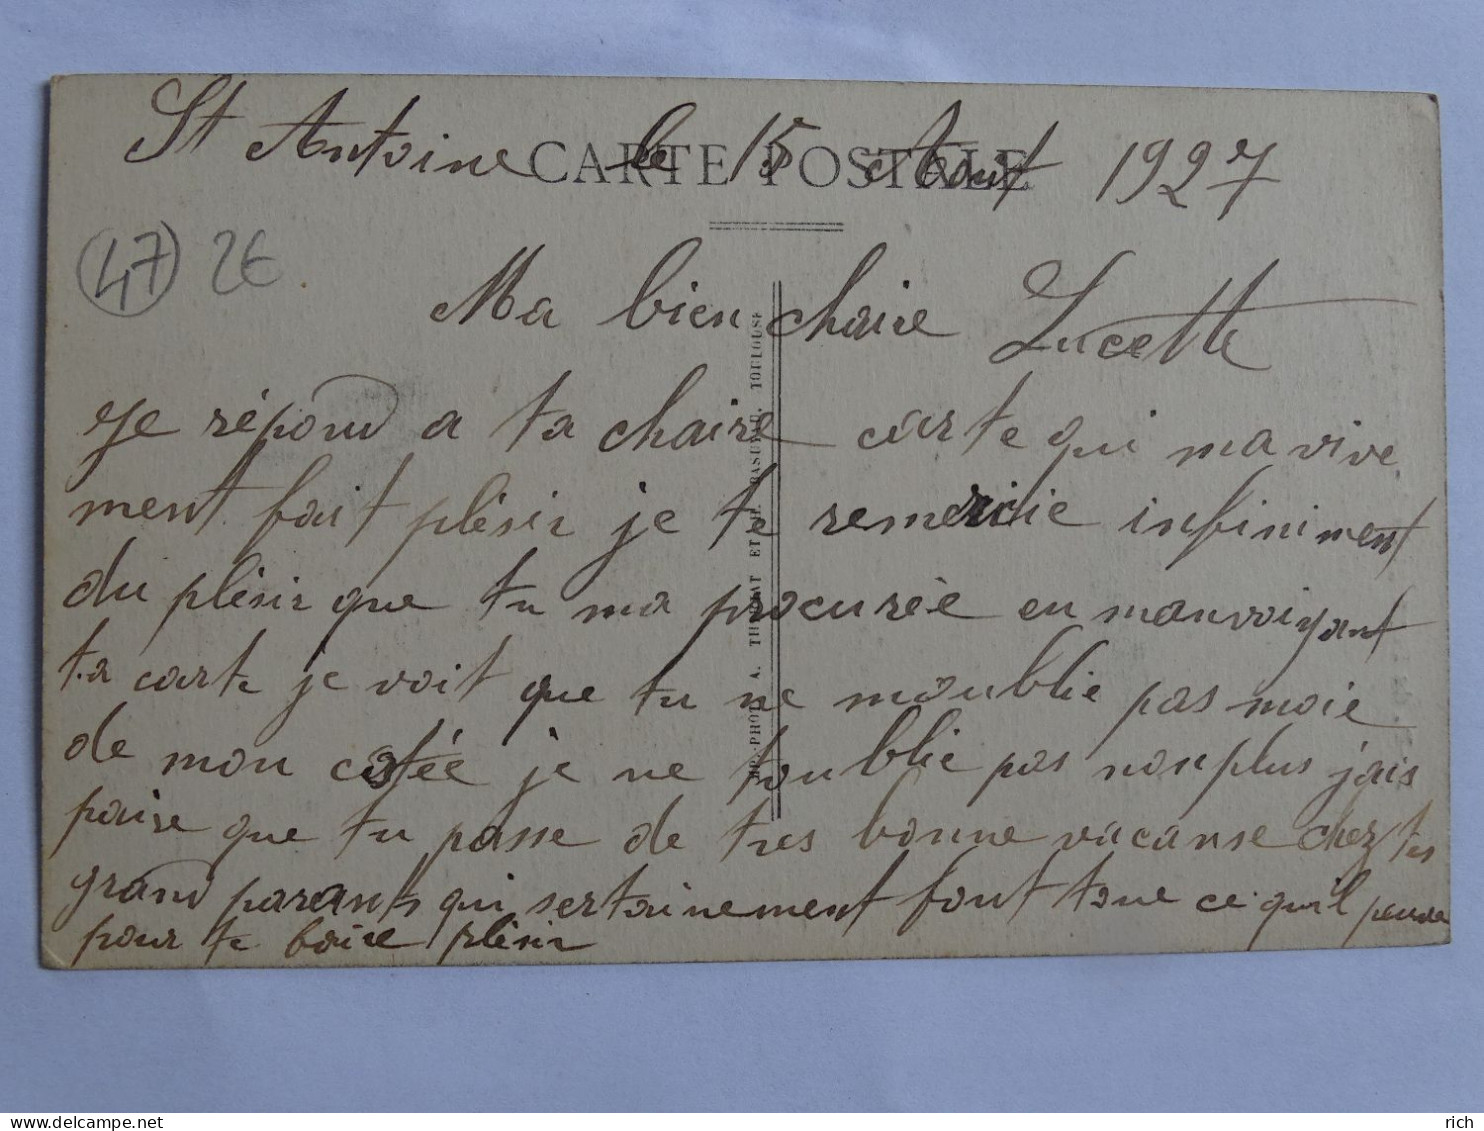 St Antoine le 15 Aout 1927
CARTE POSTALE
47 2€
Ma bien chaire Lucette
Je répond a ta chaire carte qui ma vive
ment fait plésir je te remercie infiniment
du plésir que tu ma procurèe en manvoiyant
ta carte je voit que tu ne moublie pas moie
de mon cotée je ne toublie pas non plus jais
paire que tu passe de tres bonne vacanse chez tes
grand parants qui sertainement font tout ce qu'il peuve
pour te faire plésir
PHOT. A. THIRIAT ET CIE BASUYAU. TOULOUSE
rich